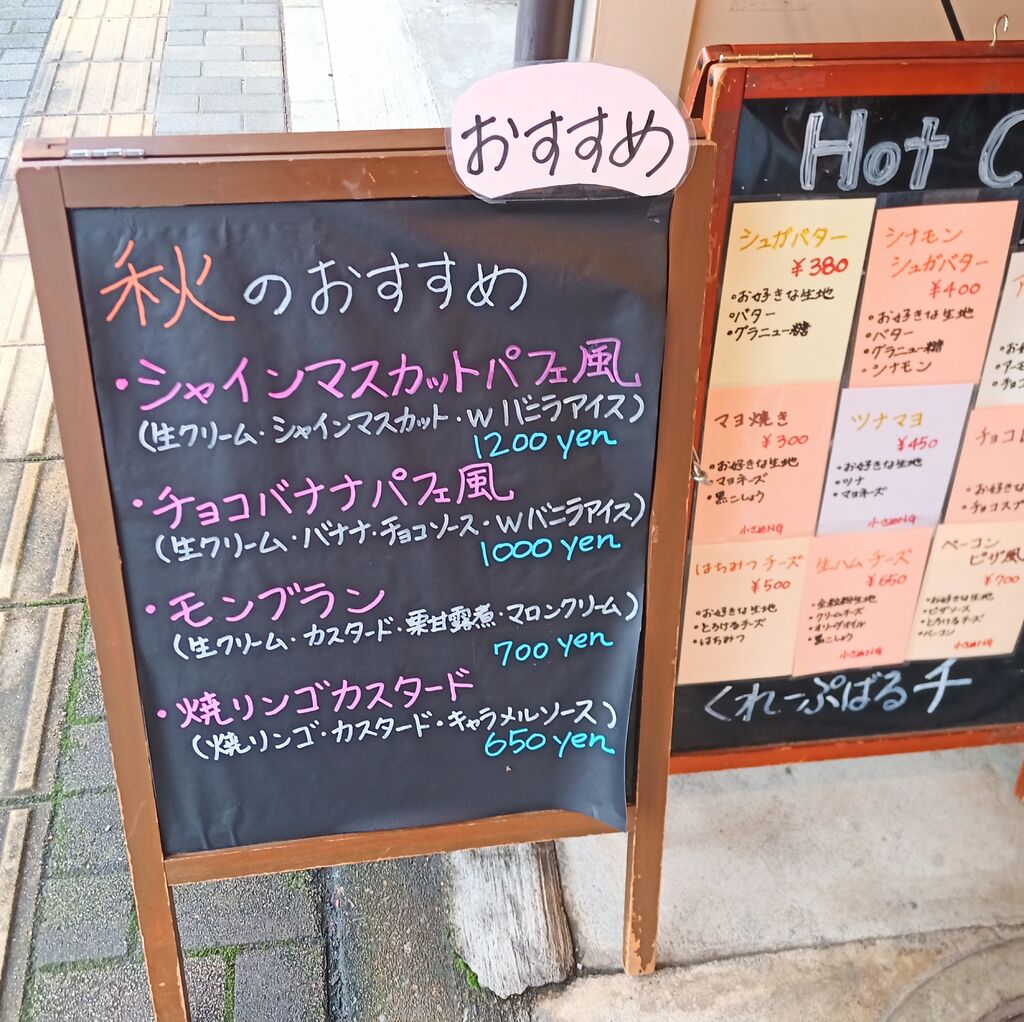 おすすめ
秋のおすすめ
・シャインマスカットパフェ風
(生クリーム・シャインマスカット・Wバニラアイス)
1200 yen
・チョコバナナパフェ風
(生クリーム・バナナ・チョコソース・Wバニラアイス)
1000 yen
・モンブラン
(生クリーム・カスタード・栗甘露煮・マロンクリーム)
700 yen
・焼リンゴカスタード
(焼リンゴ・カスタード・キャラメルソース)
650 yen
Hot C
シュガバター
¥380
・お好きな生地
・バター
・グラニュー糖
シナモン
シュガバター
¥400
・お好きな生地
・バター
・グラニュー糖
・シナモン
マヨ焼き
¥300
・お好きな生地
・マヨネーズ
・黒こしょう
小さめNG
ツナマヨ
¥450
・お好きな生地
・ツナ
・マヨネーズ
小さめNG
チョコ
・お好き
・チョコス
はちみつチーズ
¥500
・お好きな生地
・とろけるチーズ
・はちみつ
生ハムチーズ
¥650
・全粒粉生地
・クリームチーズ
・オリーヴオイル
・黒こしょう
小さめNG
ベーコン
ピザ風
¥700
・お好きな生地
・ピザソース
・とろけるチーズ
・ベーコン
小さめNG
くれーぷばるチ